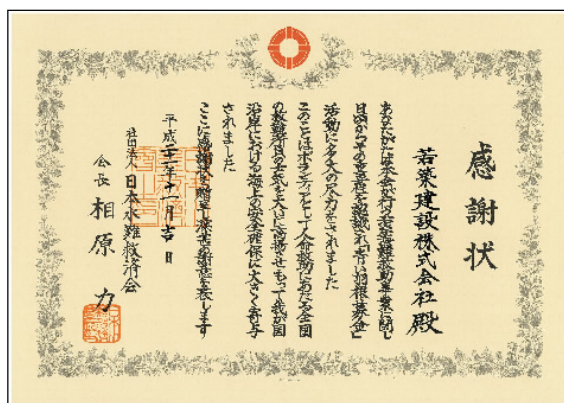 感謝状
若築建設株式会社 殿
あなたがたは本会が行う水難救助事業に関し
日頃からその重要性を認識され「青い羽根募金」
活動に多大の尽力をされました
このことはボランティアとして人命救助にあたる全国
の救難所員の士気を大いに高揚させもって我が国
沿岸における海上の安全確保に大きく寄与
されました
ここに感謝状を贈り深甚なる謝意を表します
平成二十一年十一月吉日
社団法人 日本水難救済会
会長 相原 力